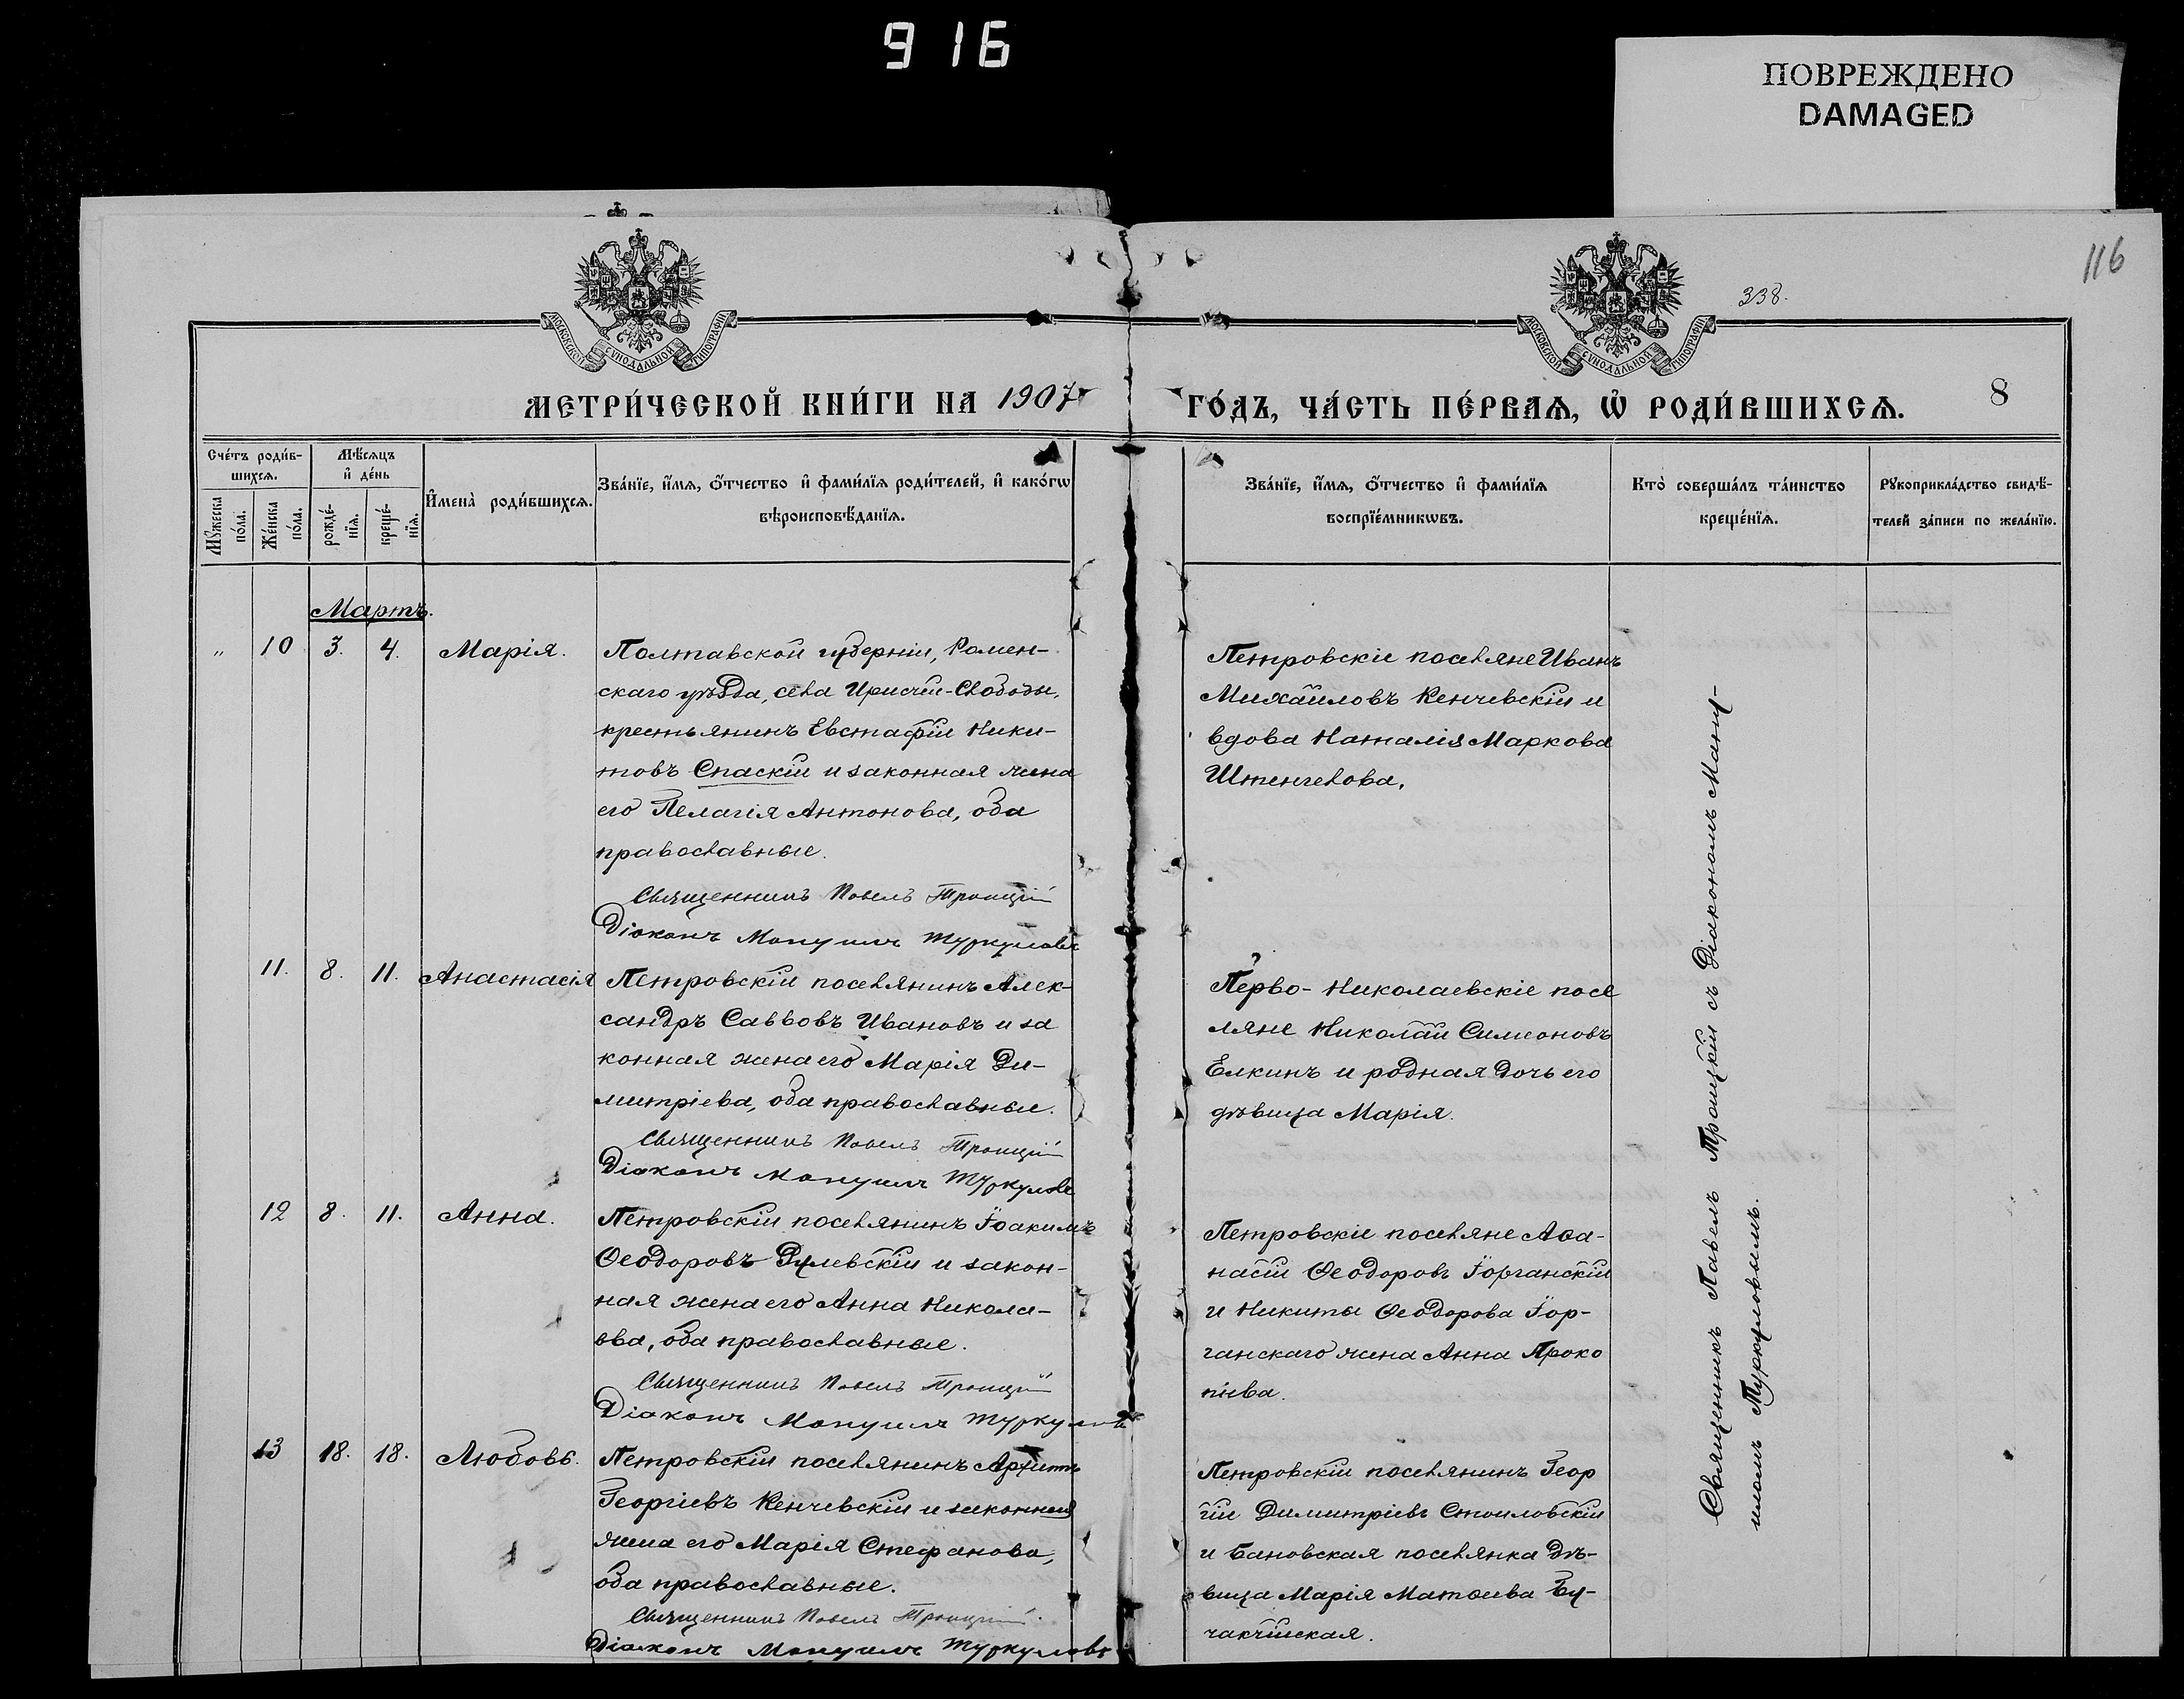 916
ПОВРЕЖДЕНО
DAMAGED
116
338.
МОСКОВСКОЙ СѴНОДАЛЬНОЙ ТИПОГРАФІИ
МОСКОВСКОЙ СѴНОДАЛЬНОЙ ТИПОГРАФІИ
МЕТРИ́ЧЕСКОЙ КНИ́ГИ НА 1907
ГО́ДЪ, ЧА́СТЬ ПЕ́РВАѦ, Ѡ҆ РОДИ́ВШИХСѦ.
8
Сче́тъ роди́в-
шихсѧ.
Мꙋ́жеска по́ла.
Же́нска по́ла.
Мѣ́сѧцъ
и҆ де́нь
рожде́-
нїѧ.
креще́-
нїѧ.
И҆мена̀ роди́вшихсѧ.
Зва́нїе, и҆́мѧ, ѻ҆́тчество и҆ фами́лїѧ роди́телей, и҆ како́гѡ
вѣроисповѣ́данїѧ.
Зва́нїе, и҆́мѧ, ѻ҆́тчество и҆ фами́лїѧ
воспрїе́мникѡвъ.
Кто̀ соверша́лъ та́инство
креще́нїѧ.
Рꙋкоприкла́дство свидѣ́-
телей за́писи по жела́нїю.
Мартъ.
" 10 3. 4. Марія.
Полтавской губерніи, Ромен-
скаго уѣзда, села -Слободы,
крестьянинъ Евстафій Ники-
товъ Спаскій и законная жена
его Пелагія Антонова, оба
православные.
Священникъ Павелъ Троицкій
Діаконъ Мануилъ Туркуловъ
Петровскіе поселяне Иванъ
Михайловъ Кенчевскій и
вдова Наталія Маркова
Штенгелова.
11. 8. 11. Анастасія
Петровскій поселянинъ Алек-
сандръ Саввовъ Ивановъ и за
конная жена его Марія Ди-
митріева, оба православные.
Священникъ Павелъ Троицкій
Діаконъ Мануилъ Туркуловъ
Перво-Николаевскіе посе
ляне Николай Симеоновъ
Елкинъ и родная дочь его
дѣвица Марія.
12 8. 11. Анна.
Петровскій поселянинъ Іоакимъ
Ѳеодоровъ Рулевскій и закон-
ная жена его Анна Никола-
ева, оба православные.
Священникъ Павелъ Троицкій
Діаконъ Мануилъ Туркуловъ
Петровскіе поселяне Аѳа-
насій Ѳеодоровъ Іорганскій
и Никиты Ѳеодорова Іор-
ганскаго жена Анна Проко
піева.
13 18. 18. Любовь.
Петровскій поселянинъ
Георгіевъ Кенчевскій и законная
жена его Марія Стефанова,
оба православные.
Священникъ Павелъ Троицкій.
Діаконъ Мануилъ Туркуловъ
Петровскій поселянинъ Геор
гій Димитріевъ Стоиловскій
и Бановская поселянка дѣ-
вица Марія Матѳеева Бу-
чакчійская.
Священникъ Павелъ Троицкій съ Діакономъ Ману-
иломъ Туркуловымъ.